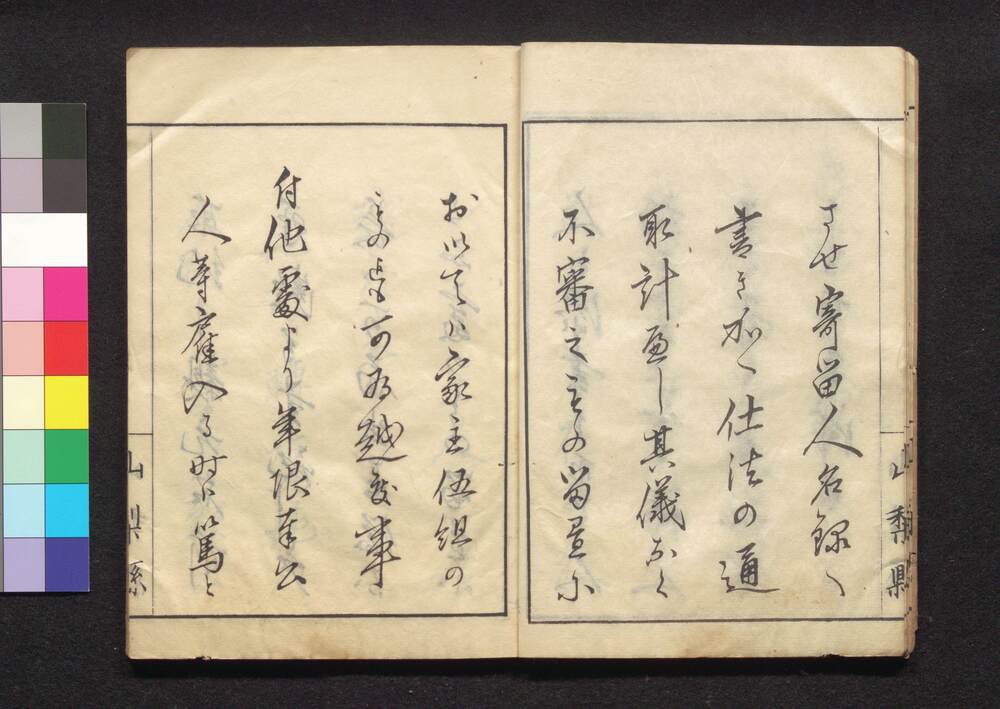 させ寄留人名録へ
書き加へ仕法の通
取計へし其儀なく
不審之もの留置に
おゐてハ家主伍組の
ものとも可為越度事
付他處より年限奉公
人等雇入る時は篤と
山梨県